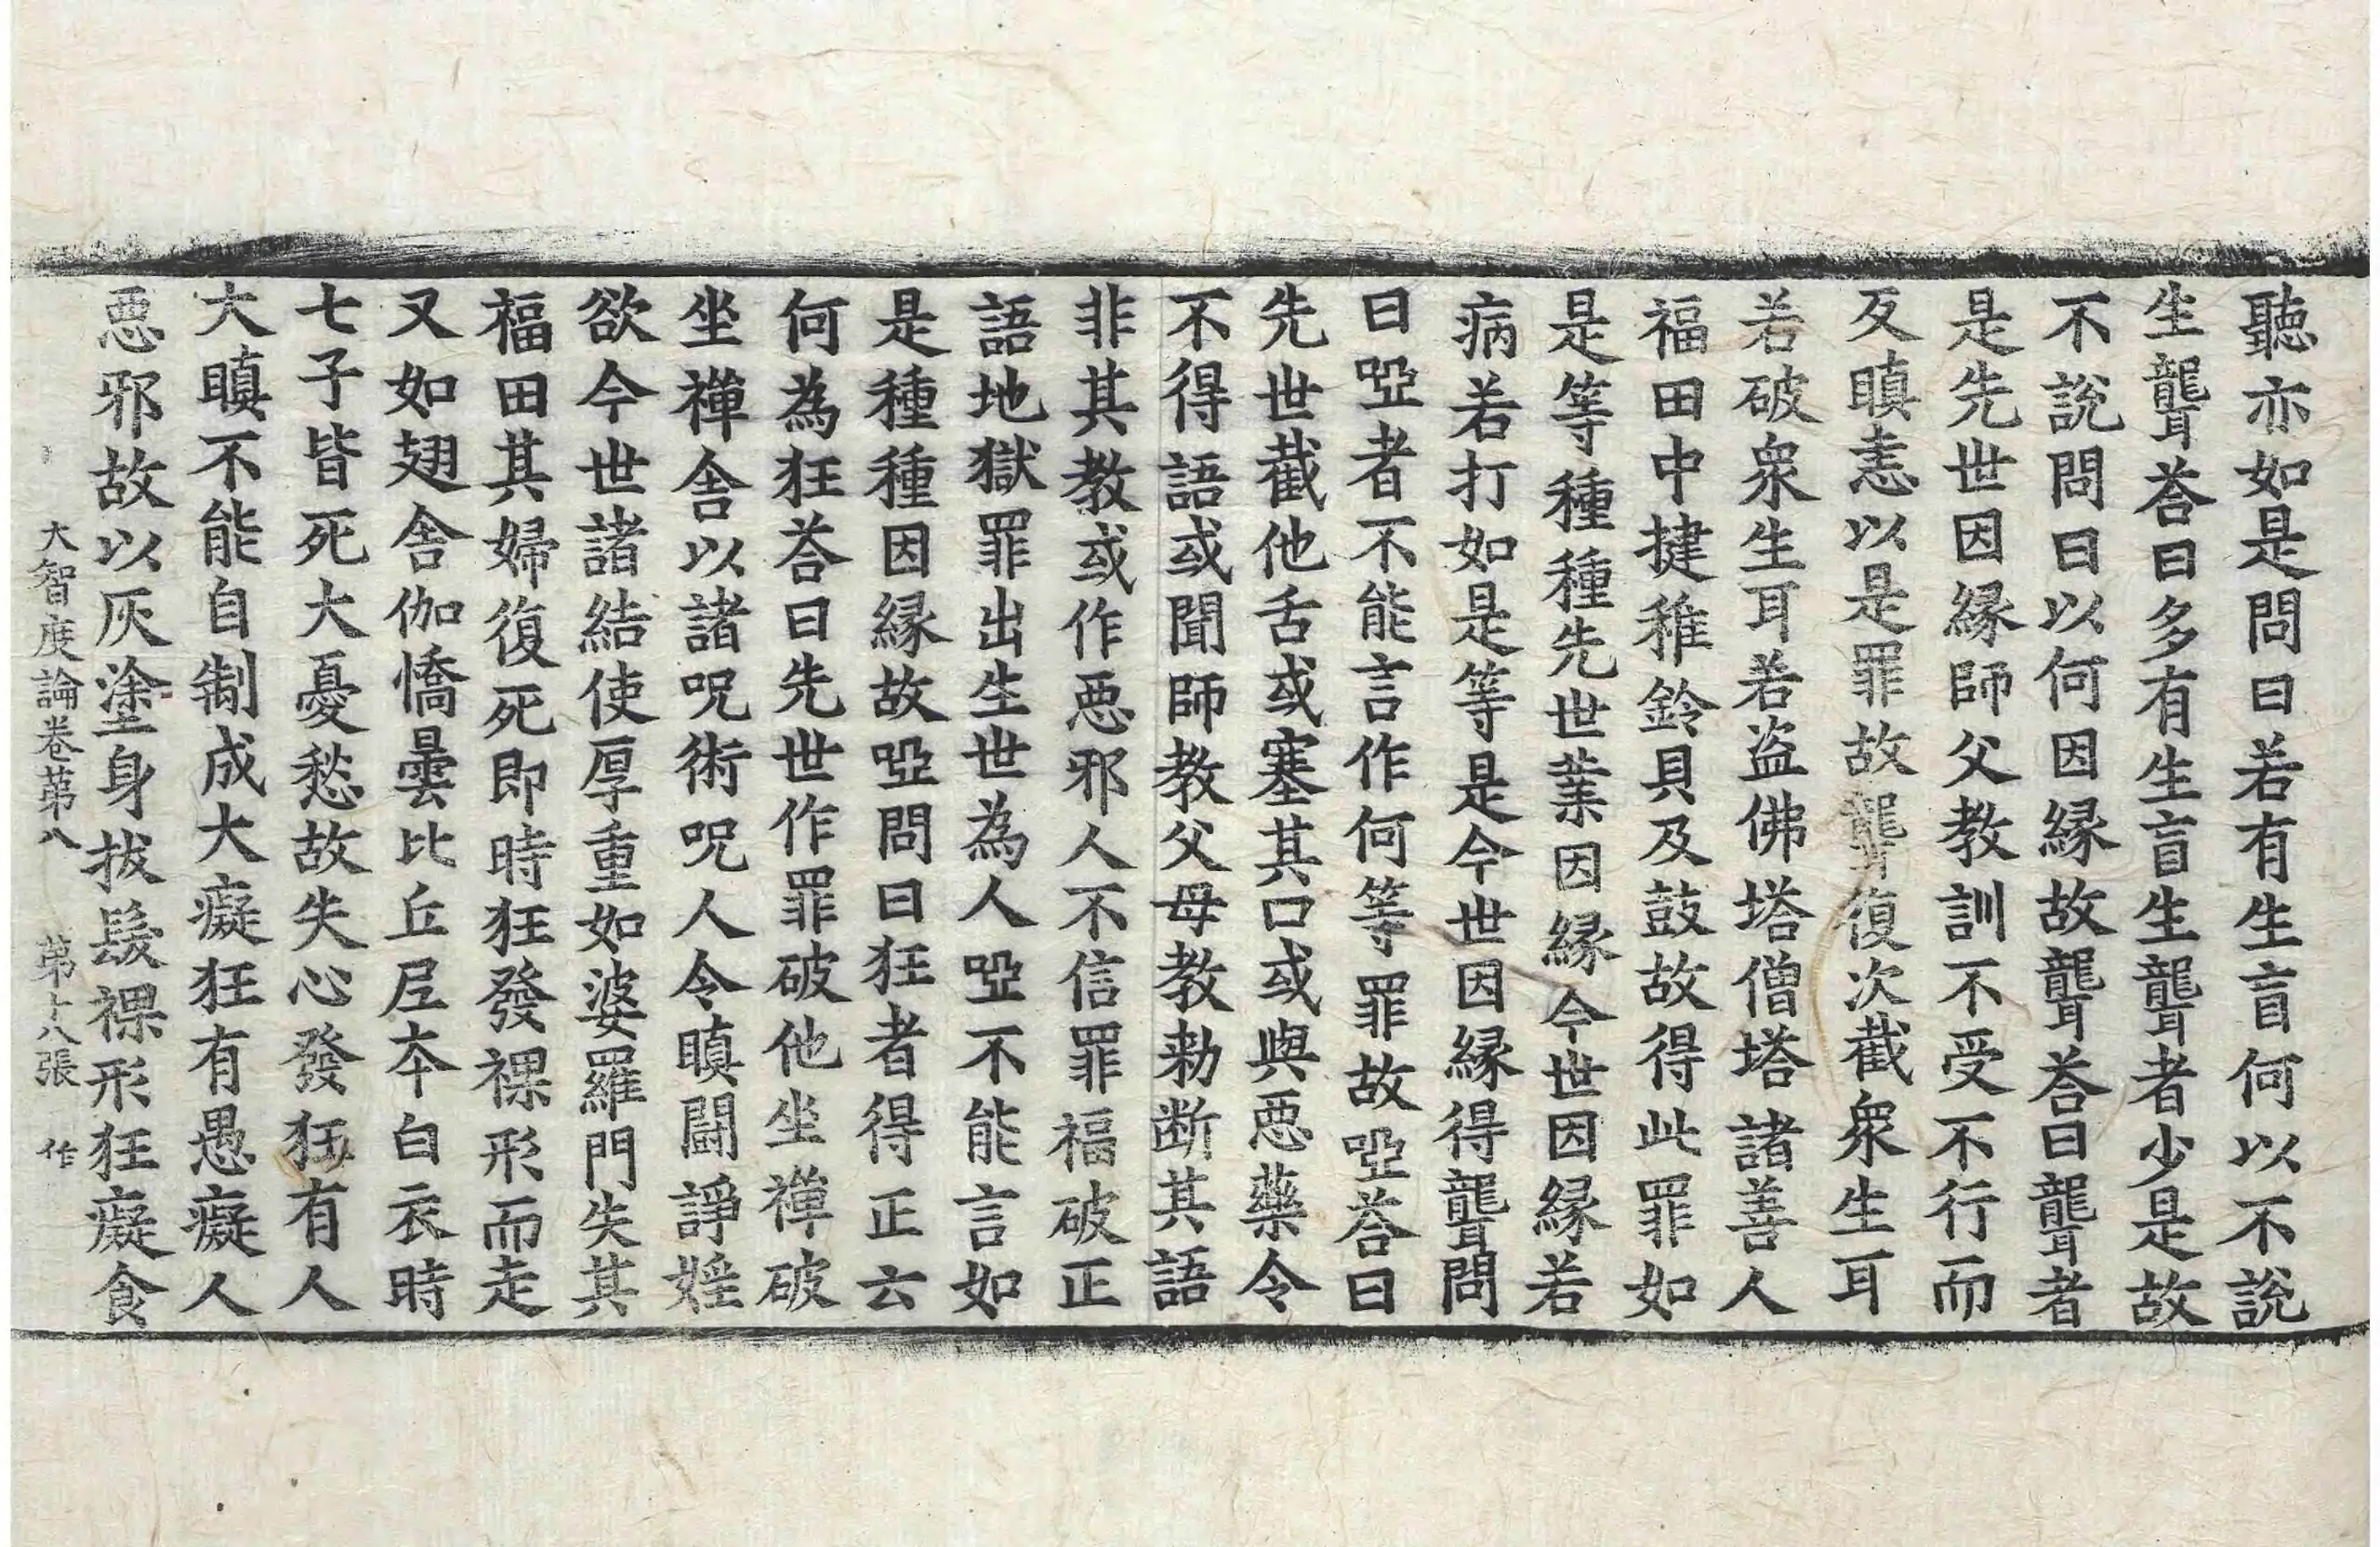 聽亦如是問曰若有生盲何以不說
生聾荅曰多有生盲生聾者少是故
不說問曰以何因緣故聾荅曰聾者
是先世因緣師父教訓不受不行而
反瞋恚以是罪故聾復次截衆生耳
若破衆生耳若盜佛塔僧塔諸善人
福田中揵稚鈴貝及鼓故得此罪如
是等種種先世業因緣今世因緣若
病若打如是等是今世因緣得聾問
曰啞者不能言作何等罪故啞荅曰
先世截他舌或塞其口或與惡藥令
不得語或聞師教父母教勑断其語
非其教或作惡邪人不信罪福破正
語地獄罪出生世為人啞不能言如
是種種因緣故啞問曰狂者得正云
何為狂荅曰先世作罪破他坐禪破
坐禪舍以諸呪術呪人令瞋闘諍婬
欲今世諸結使厚重如婆羅門失其
福田其婦復死即時狂發裸形而走
又如翅舍伽憍曇比丘尼本白衣時
七子皆死大憂愁故失心發狂有人
大瞋不能自制成大癡狂有愚癡人
惡邪故以灰塗身拔髮裸形狂癡食
大智度論卷苐八 苐十八張 作